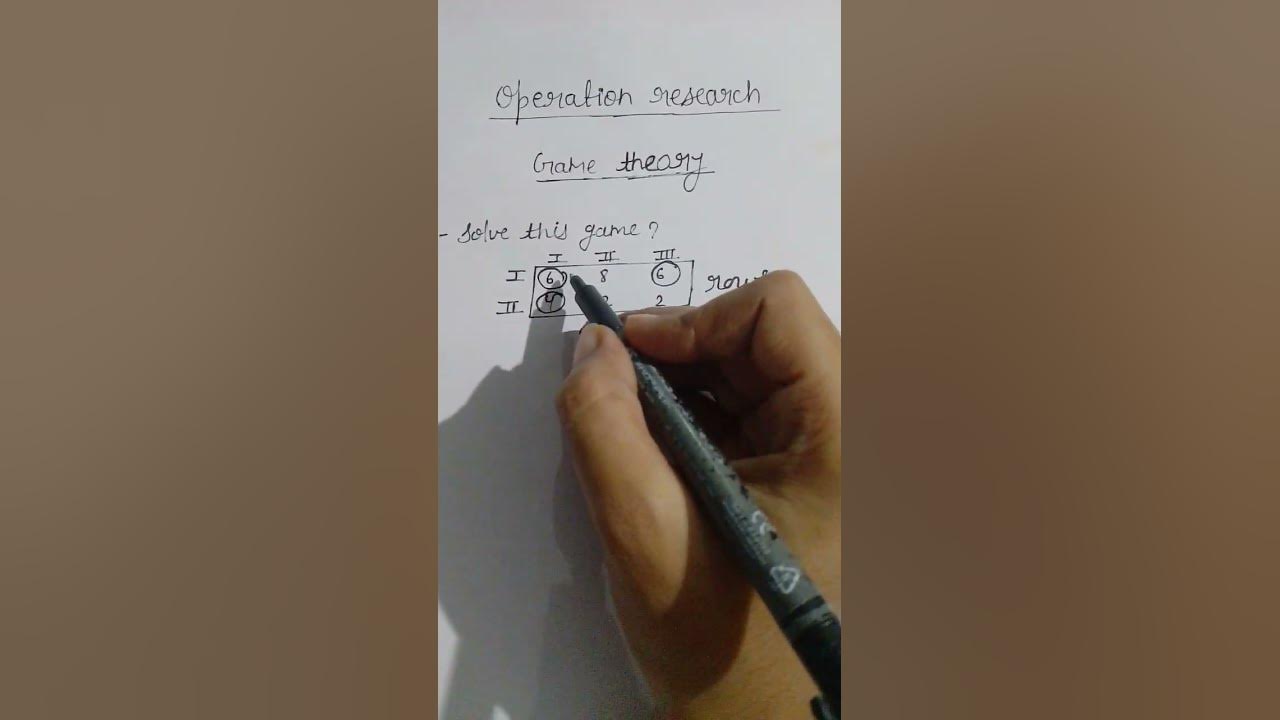 Operation research
Game theory
- Solve this game?
I II III
I 6 8 6
II 4 2 2